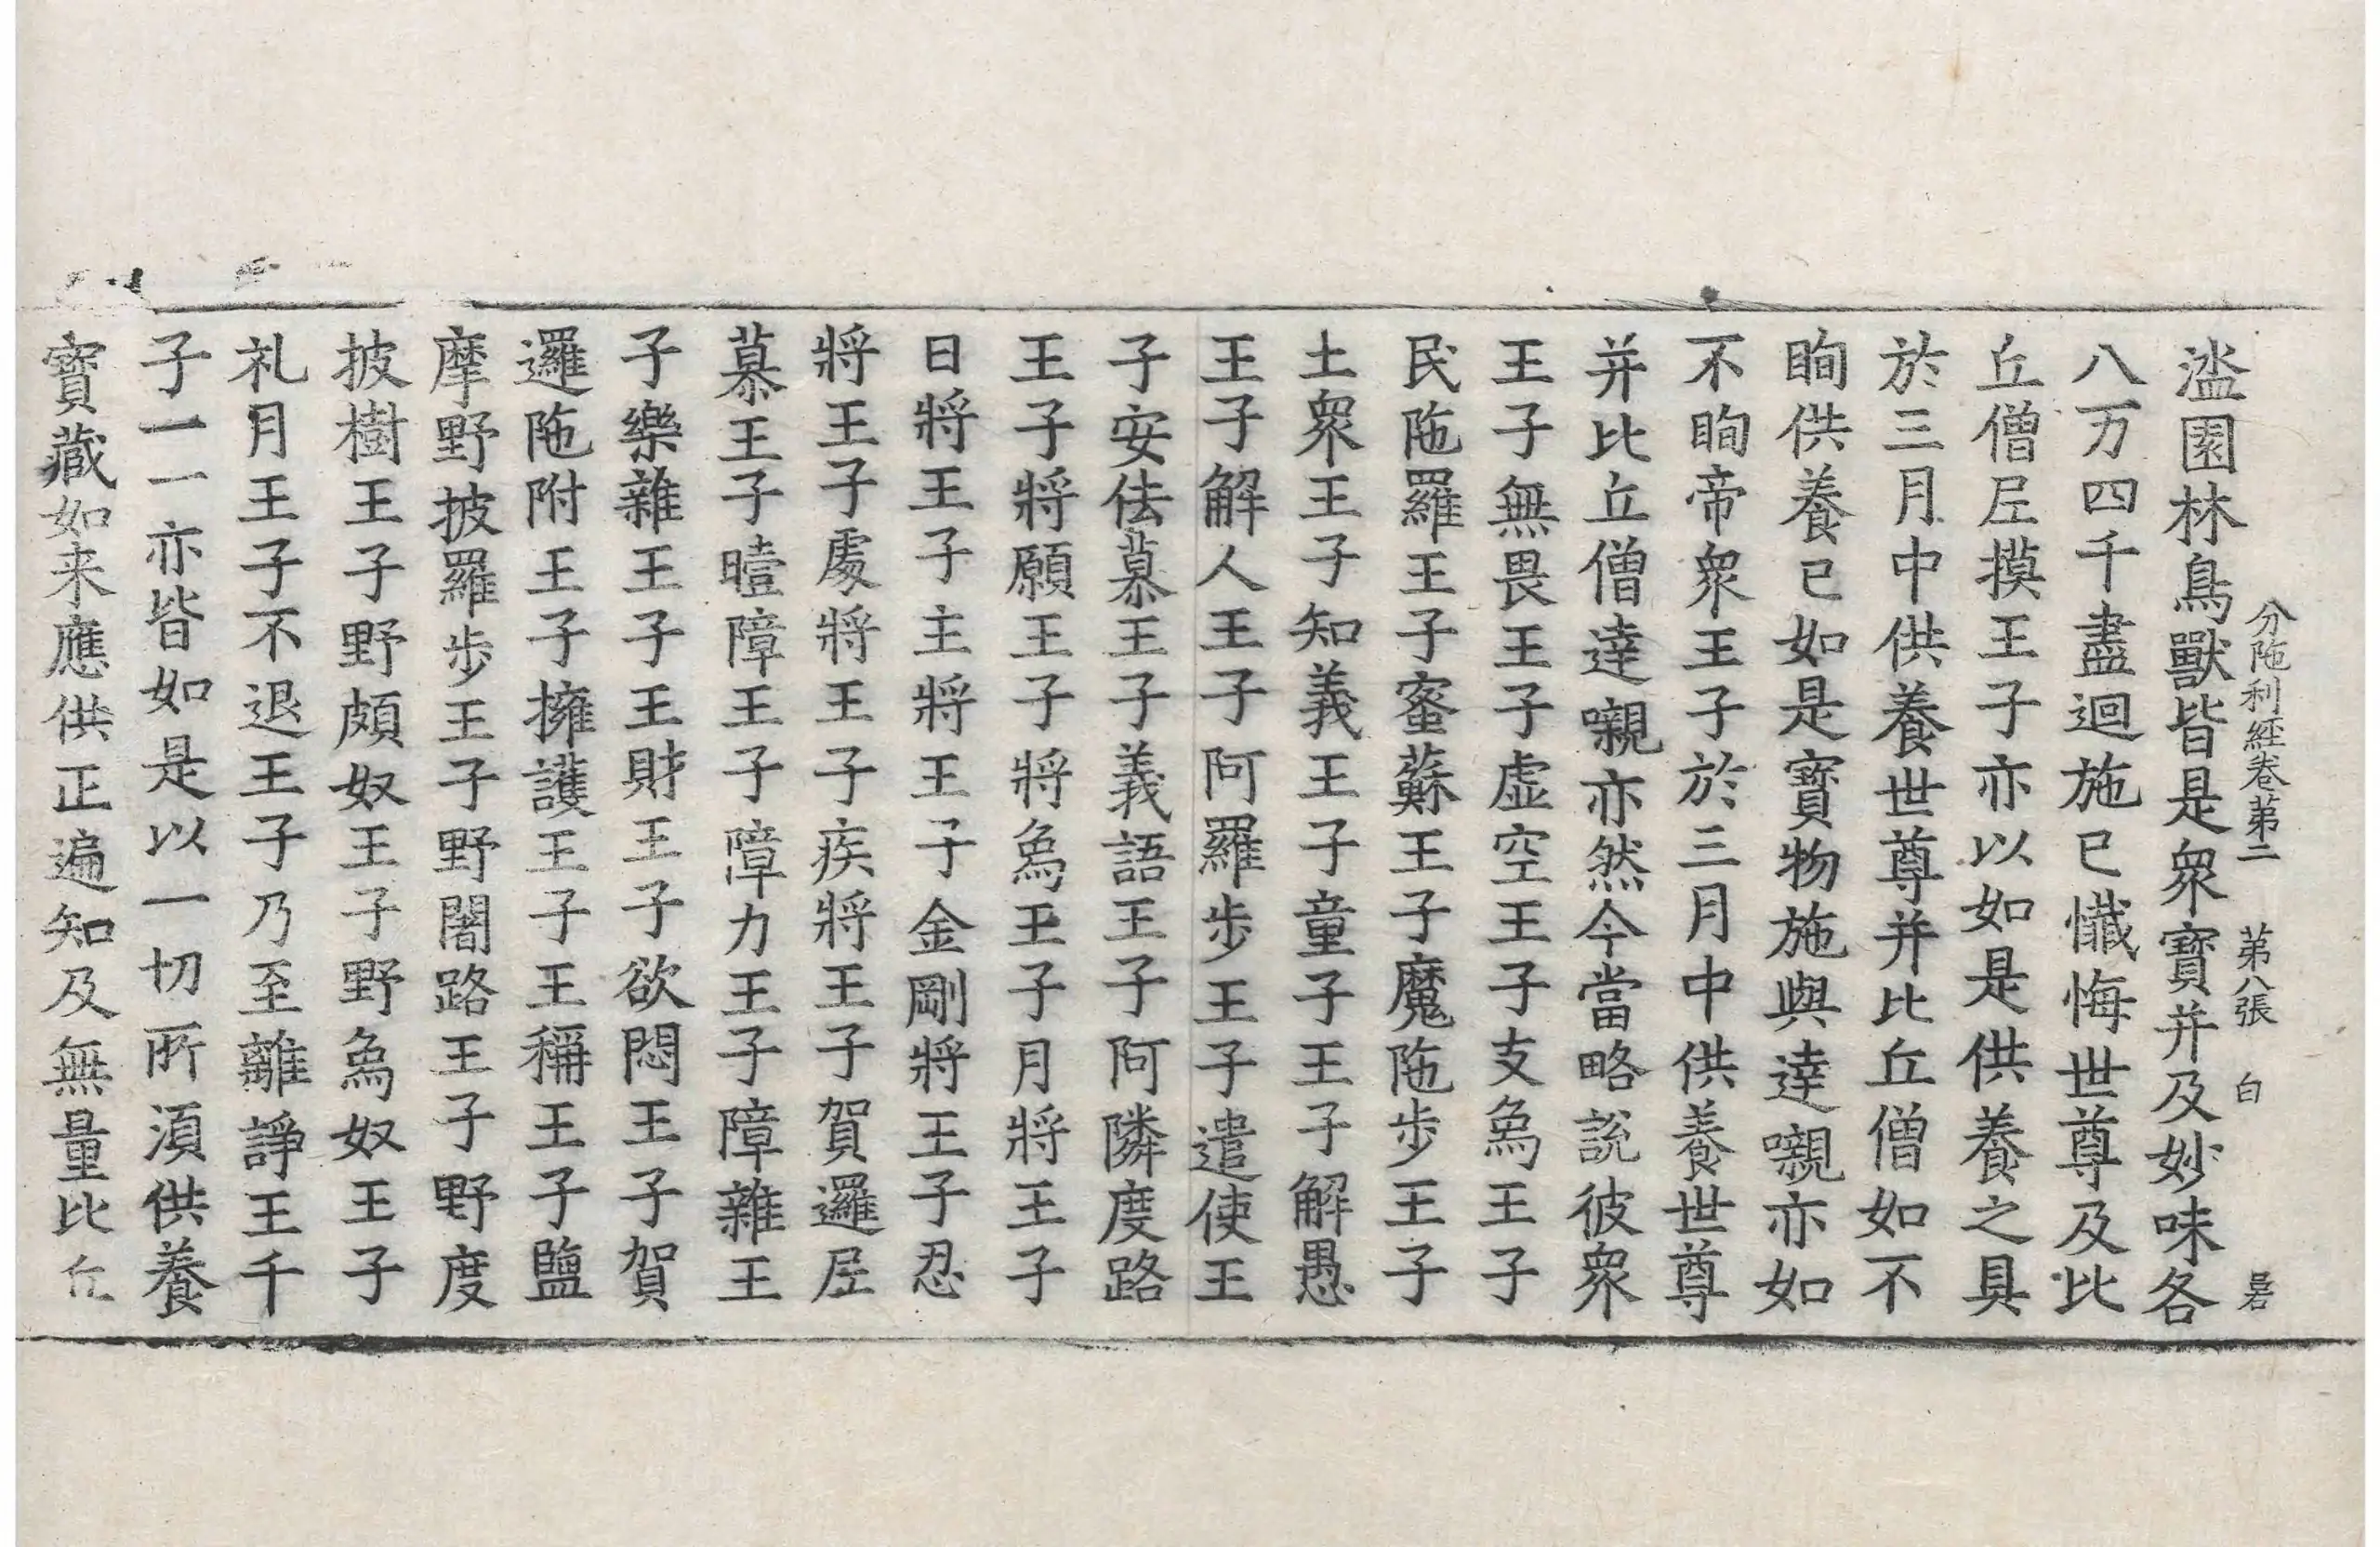 分陁利經卷苐二 苐八張 白
湓園林鳥獸皆是衆寶并及妙味各
八万四千盡迴施已懺悔世尊及比
丘僧𡰱摸王子亦以如是供養之具
於三月中供養世尊并比丘僧如不
眴供養已如是寳物施與達嚫亦如
不眴帝衆王子於三月中供養世尊
并比丘僧達嚫亦然今當略説彼衆
王子無畏王子虛空王子支爲王子
民陁羅王子蜜蘇王子魔陁步王子
土衆王子知義王子童子王子解愚
王子解人王子阿羅步王子遣使王
子安佉慕王子義語王子阿隣度路
王子將願王子將爲王子月將王子
日將王子主將王子金剛將王子忍
將王子處將王子疾將王子賀邏𡰱
慕王子曀障王子障力王子障雜王
子樂雜王子王財王子欲悶王子賀
邏陁附王子擁護王子王稱王子鹽
摩野披羅步王子野闍路王子野度
披樹王子野頗奴王子野爲奴王子
礼月王子不退王子乃至離諍王千
子一一亦皆如是以一切所湏供養
寳藏如来應供正遍知及無量比丘